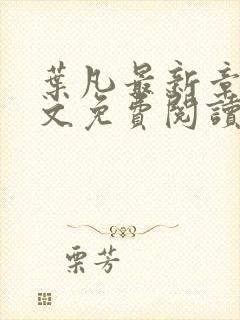 葉凡最新章
文免費閱讀
栗芳